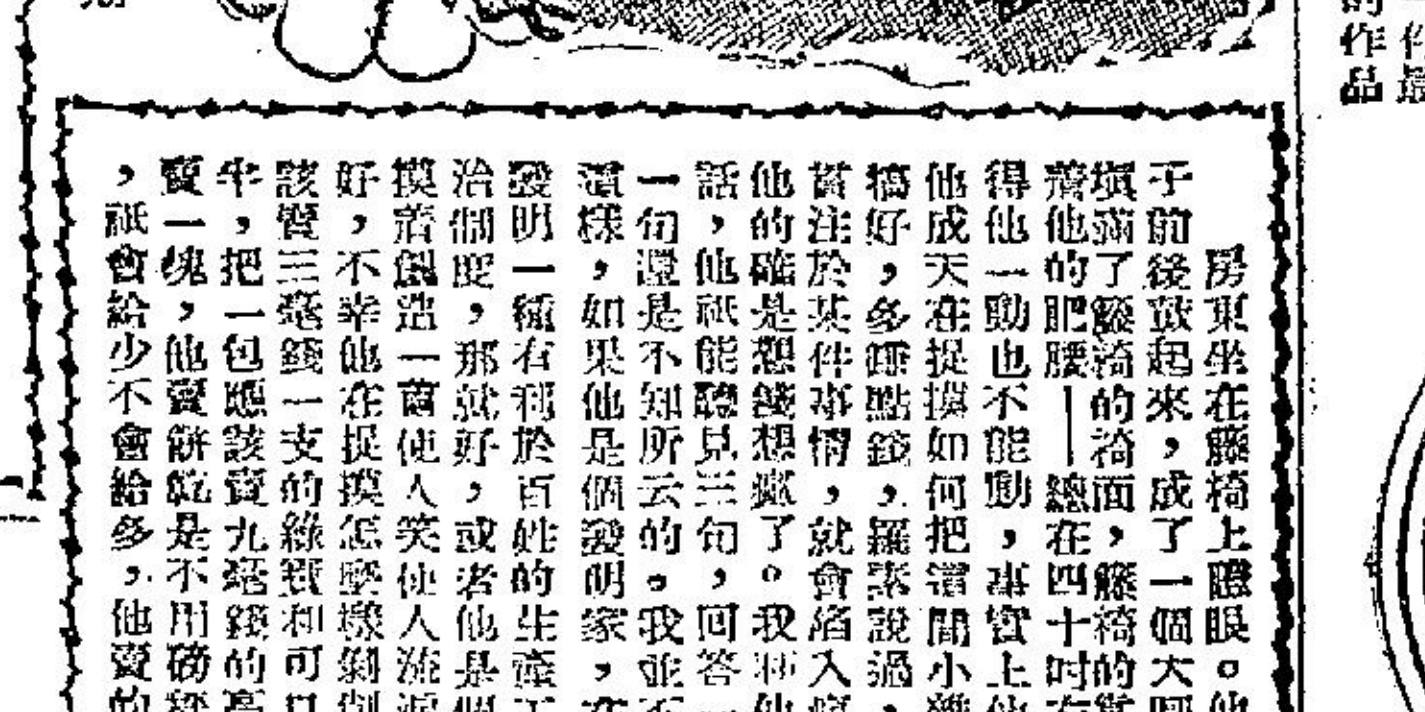 的作品
房東坐在藤椅上瞪眼。他
于前後鼓起來,成了一個大
填滿了籐椅的椅面,籐椅的
着他的肥腰——總在四十吋
得他一動也不能動,事實上他
他成天在捉摸如何把這間小
搞好,多賺點錢,羅素說過
當注於某件事情,就會陷入
他的確是想錢想瘋了。我和他
話,他祇能聽見三句,回答一
一句還是不知所云的。我並不
這樣,如果他是個發明家,在
發明一種有利於百姓的生產工
治個度,那就好,或者他是個
摸着創造一齣使人笑使人流淚
好,不幸他在捉摸怎麼樣剝削
該賣三毫錢一支的綠寶和可口
半,把一包應該賣九毫錢的高
賣一塊,他賣餅乾是不用磅秤
,祇會給少不會給多,他賣的